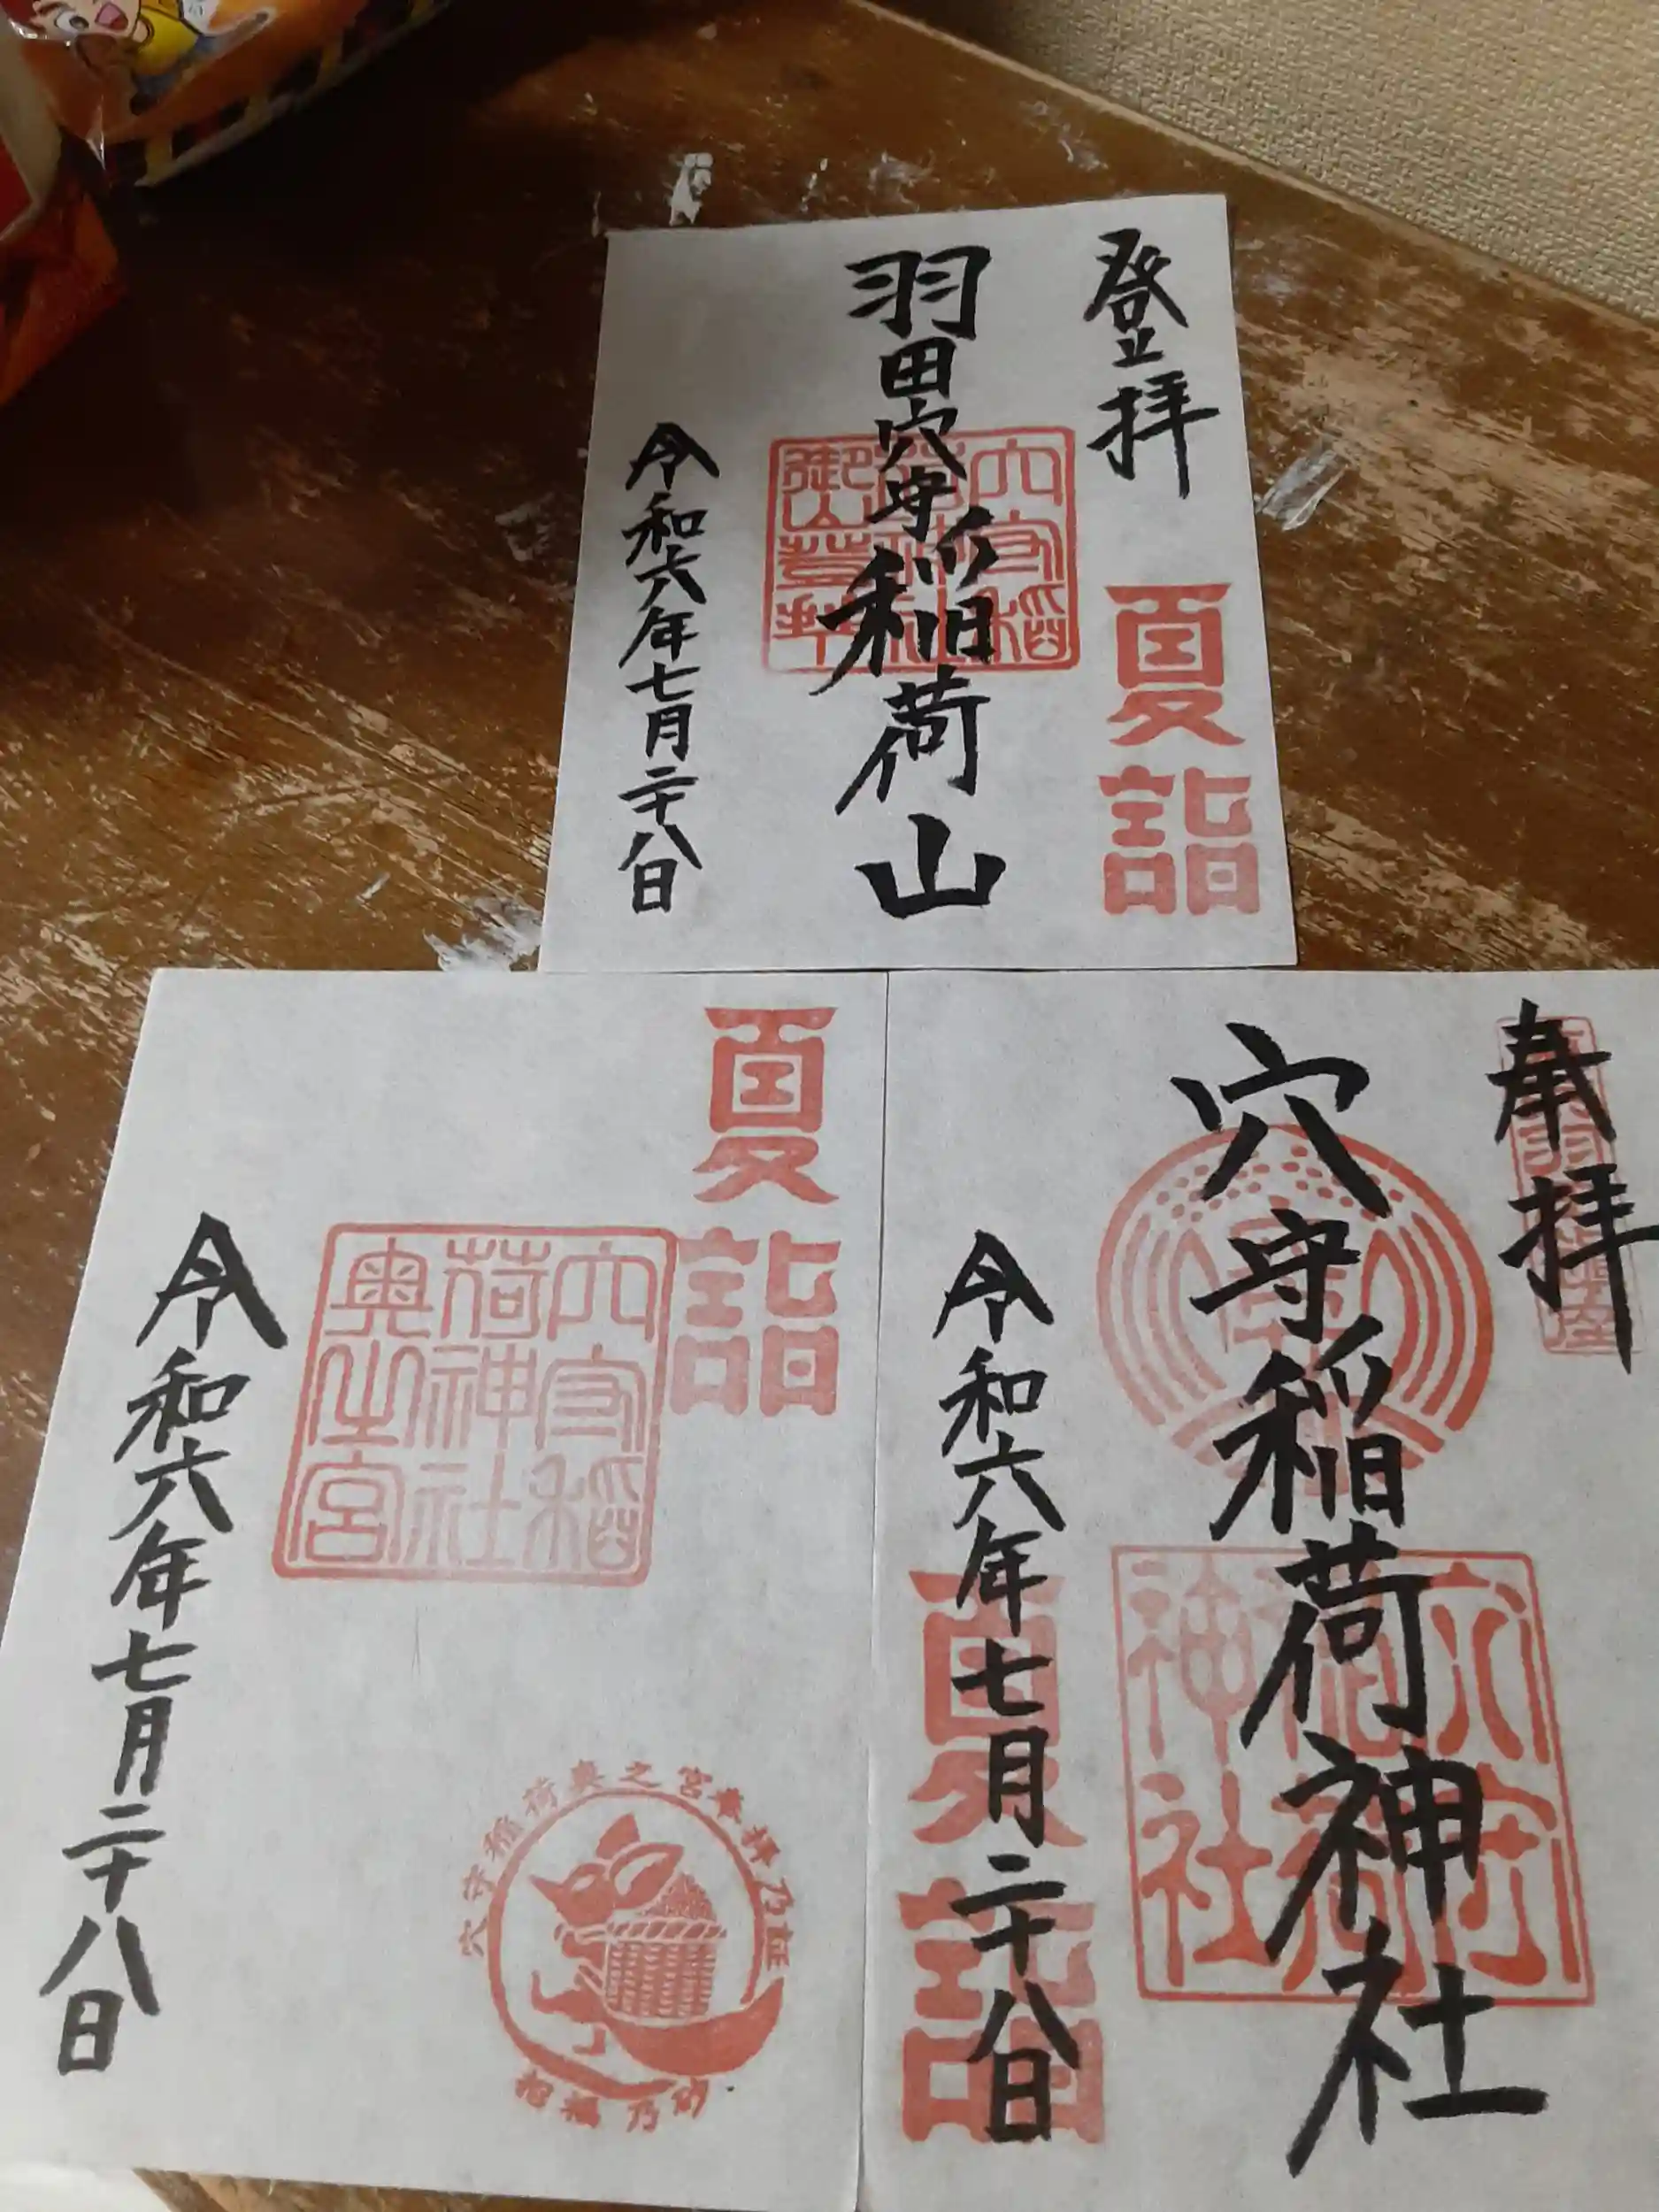 登拝
夏詣
羽田穴守稲荷山
穴守稲
荷神社
御山登拝
令和六年七月二十八日
奉拝
穴守稲荷神社
穴守
稲荷
神社
夏詣
令和六年七月二十八日
夏詣
穴守稲
荷神社
奥之宮
穴守稲荷奥之宮奉拝乃証
招福乃砂
令和六年七月二十八日